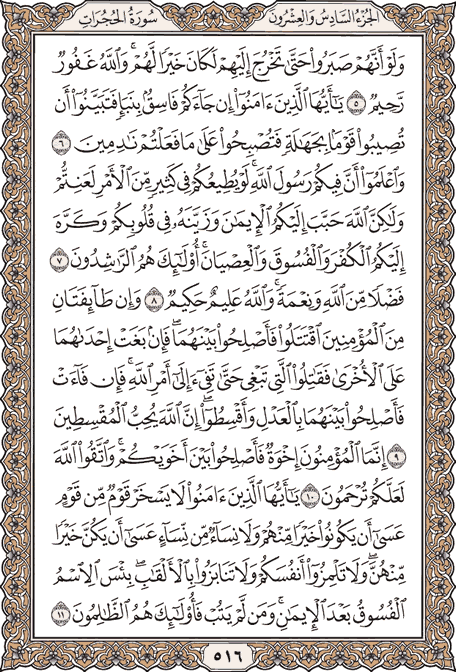 الجزء السادس والعشرون سورة الحجرات
وَلَوْ أَنَّهُمْ صَبَرُوا۟ حَتَّىٰ تَخْرُجَ إِلَيْهِمْ لَكَانَ خَيْرًا لَّهُمْ ۚ وَٱللَّهُ غَفُورٌ
رَّحِيمٌ ٥ يَـٰٓأَيُّهَا ٱلَّذِينَ ءَامَنُوٓا۟ إِن جَآءَكُمْ فَاسِقٌۢ بِنَبَإٍ فَتَبَيَّنُوٓا۟ أَن
تُصِيبُوا۟ قَوْمًۢا بِجَهَـٰلَةٍ فَتُصْبِحُوا۟ عَلَىٰ مَا فَعَلْتُمْ نَـٰدِمِينَ ٦
وَٱعْلَمُوٓا۟ أَنَّ فِيكُمْ رَسُولَ ٱللَّهِ ۚ لَوْ يُطِيعُكُمْ فِى كَثِيرٍ مِّنَ ٱلْأَمْرِ لَعَنِتُّمْ
وَلَـٰكِنَّ ٱللَّهَ حَبَّبَ إِلَيْكُمُ ٱلْإِيمَـٰنَ وَزَيَّنَهُۥ فِى قُلُوبِكُمْ وَكَرَّهَ
إِلَيْكُمُ ٱلْكُفْرَ وَٱلْفُسُوقَ وَٱلْعِصْيَانَ ۚ أُو۟لَـٰٓئِكَ هُمُ ٱلرَّٰشِدُونَ ٧
فَضْلًا مِّنَ ٱللَّهِ وَنِعْمَةً ۚ وَٱللَّهُ عَلِيمٌ حَكِيمٌ ٨ وَإِن طَآئِفَتَانِ
مِنَ ٱلْمُؤْمِنِينَ ٱقْتَتَلُوا۟ فَأَصْلِحُوا۟ بَيْنَهُمَا ۖ فَإِنۢ بَغَتْ إِحْدَىٰهُمَا
عَلَى ٱلْأُخْرَىٰ فَقَـٰتِلُوا۟ ٱلَّتِى تَبْغِى حَتَّىٰ تَفِىٓءَ إِلَىٰٓ أَمْرِ ٱللَّهِ ۚ فَإِن فَآءَتْ
فَأَصْلِحُوا۟ بَيْنَهُمَا بِٱلْعَدْلِ وَأَقْسِطُوٓا۟ ۖ إِنَّ ٱللَّهَ يُحِبُّ ٱلْمُقْسِطِينَ
٩ إِنَّمَا ٱلْمُؤْمِنُونَ إِخْوَةٌ فَأَصْلِحُوا۟ بَيْنَ أَخَوَيْكُمْ ۚ وَٱتَّقُوا۟ ٱللَّهَ
لَعَلَّكُمْ تُرْحَمُونَ ١٠ يَـٰٓأَيُّهَا ٱلَّذِينَ ءَامَنُوا۟ لَا يَسْخَرْ قَوْمٌ مِّن قَوْمٍ
عَسَىٰٓ أَن يَكُونُوا۟ خَيْرًا مِّنْهُمْ وَلَا نِسَآءٌ مِّن نِّسَآءٍ عَسَىٰٓ أَن يَكُنَّ خَيْرًا
مِّنْهُنَّ ۖ وَلَا تَلْمِزُوٓا۟ أَنفُسَكُمْ وَلَا تَنَابَزُوا۟ بِٱلْأَلْقَـٰبِ ۖ بِئْسَ ٱلِٱسْمُ
ٱلْفُسُوقُ بَعْدَ ٱلْإِيمَـٰنِ ۚ وَمَن لَّمْ يَتُبْ فَأُو۟لَـٰٓئِكَ هُمُ ٱلظَّـٰلِمُونَ ١١
٥١٦